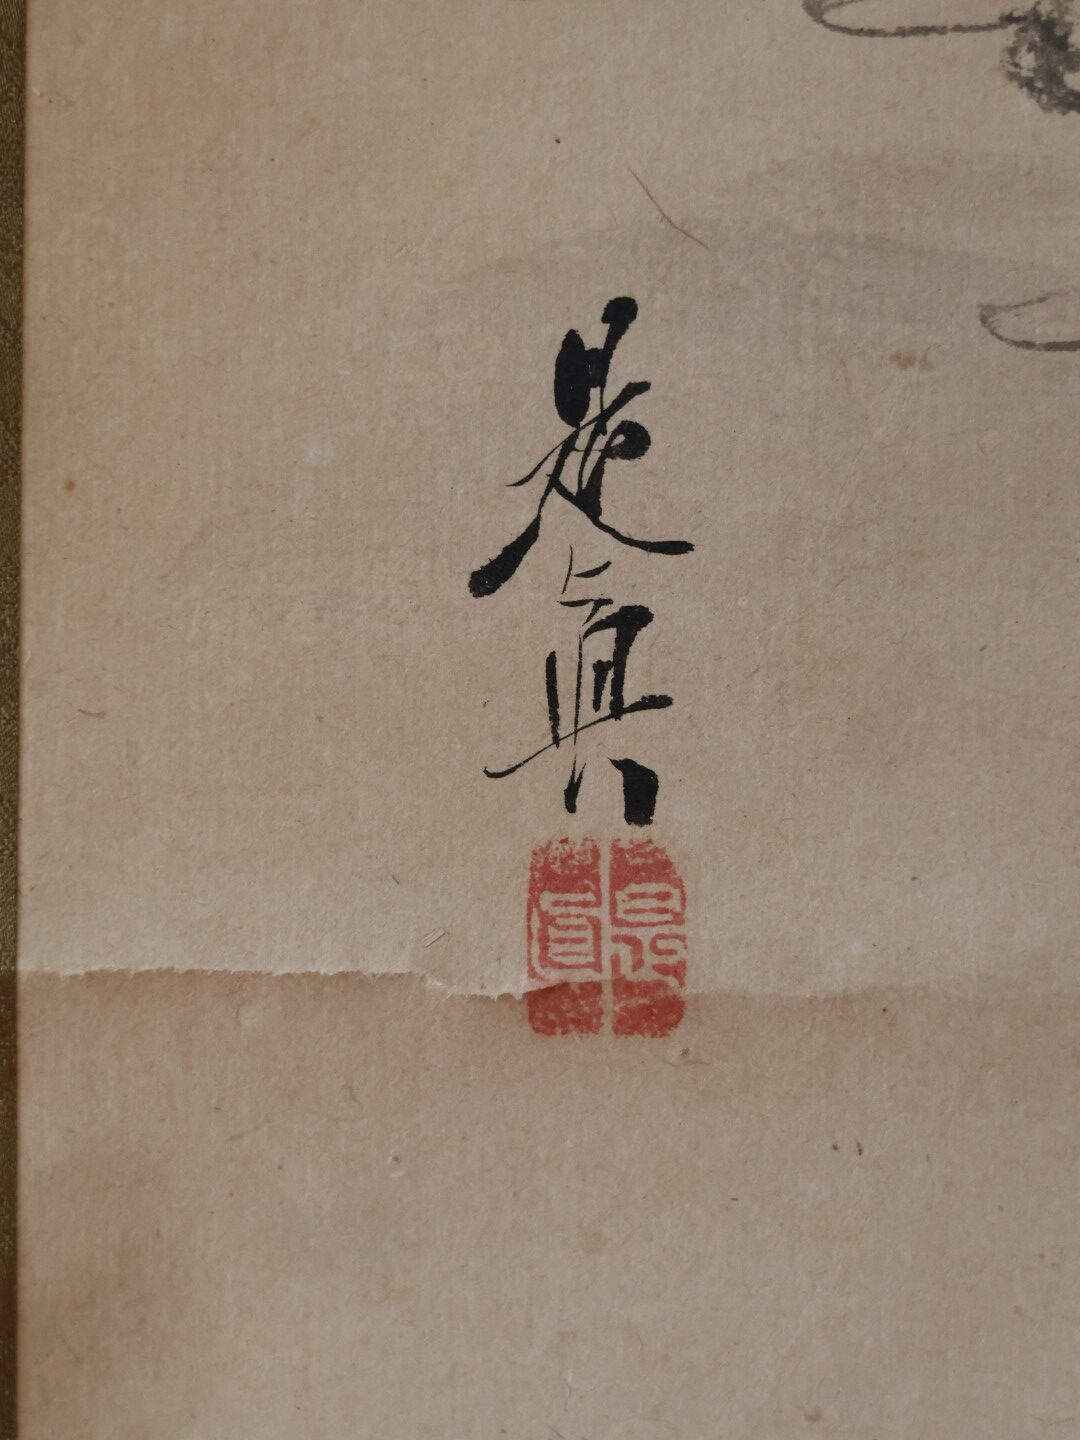 是真
是真